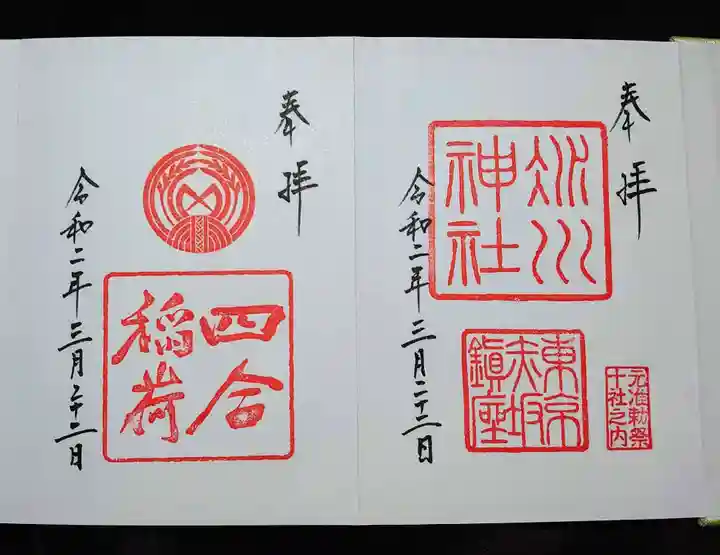 奉拝
氷川
神社
東京
赤坂
鎮座
元治勅祭
十社之内
令和二年三月二十二日
奉拝
四合
稲荷
令和二年三月二十二日